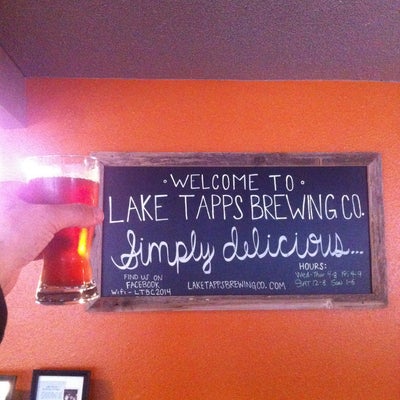 · WELCOME TO ·
LAKE TAPPS BREWING CO.
Simply delicious...
FIND US ON
FACEBOOK
WiFi - LTBC2014
LAKETAPPSBREWINGCO.COM
HOURS:
Wed-Thur 4-8 Fri 4-9
SAT 12-8 Sun 1-6